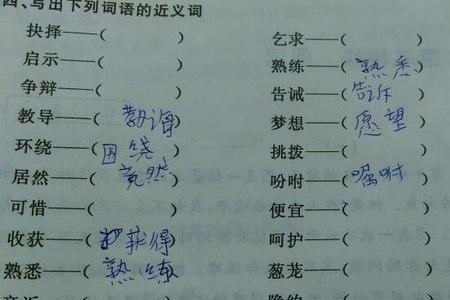 四、写出下列词语的近义词
抉择——( ) 乞求——( )
启示——( ) 熟练——( 熟悉 )
争辩——( ) 告诫——( 告诉 )
教导——( 教诲 ) 梦想——( 愿望 )
环绕——( 围绕 ) 挑拨——( )
居然——( 竟然 ) 吩咐——( 嘱咐 )
可惜——( ) 便宜——( )
收获——( 获得 ) 呵护——( )
熟悉——( 熟练 ) 葱茏——( )